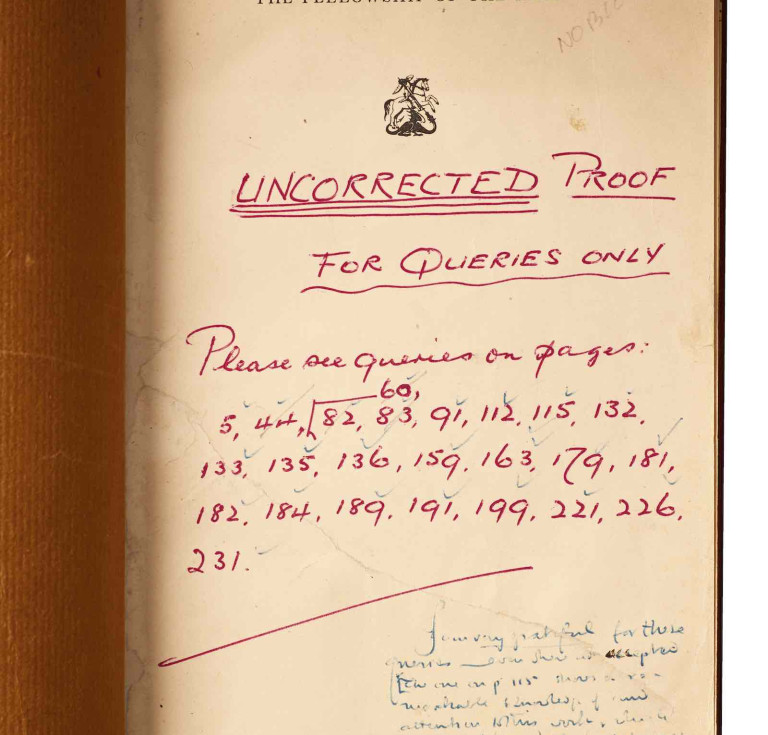 THE FELLOWSHIP OF THE
NO
UNCORRECTED PROOF
FOR QUERIES ONLY
Please see queries on pages:
60,
5, 44, 82, 83, 91, 112, 115, 132,
133, 135, 136, 159, 163, 179, 181,
182, 184, 189, 191, 199, 221, 226,
231.
I am very grateful for these
queries accepted
one on p 115 shows a re-
markable knowledge of and
attention to this work, which